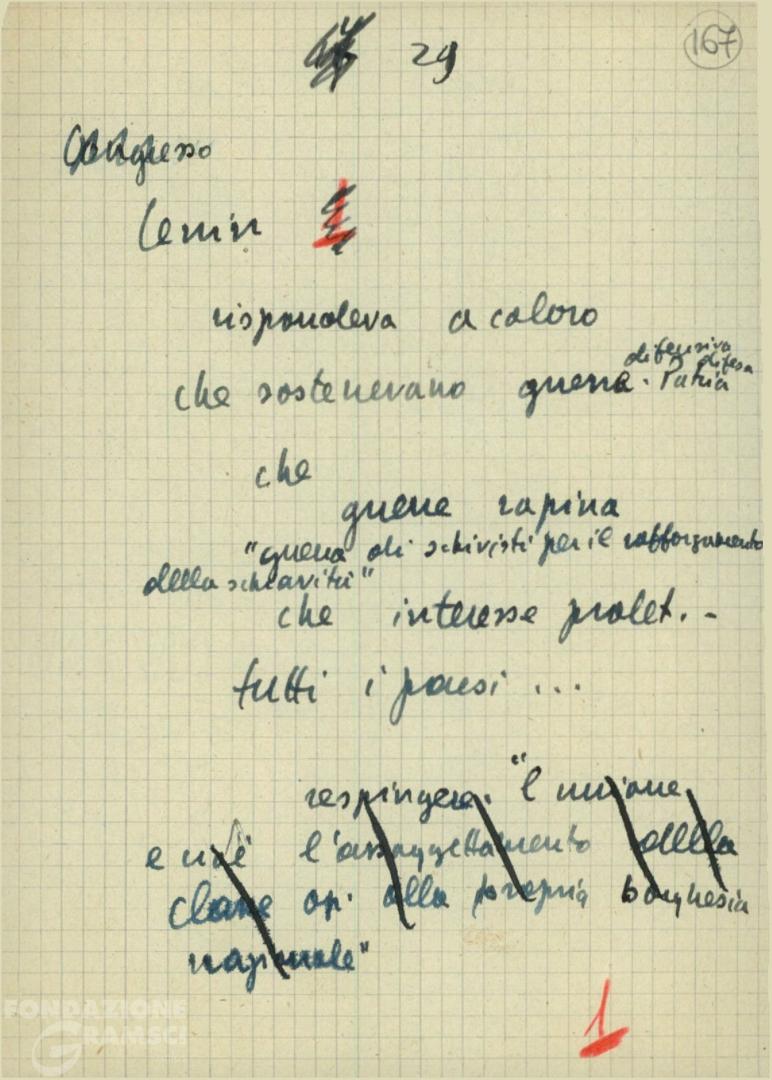 29
167
Congresso
Lenin 1
rispondeva a coloro
difensiva
difesa
che sostenevano guerra. Patria
che
guerre rapina
"guerra di schivisti per il rafforzamento
della schiavitù"
che interesse prolet..
tutti i paesi ...
respingere "l'unione
e cioè l'assoggettamento della
classe op. alla propria borghesia
nazionale"
1
FONDAZIONE
GRAMSCI